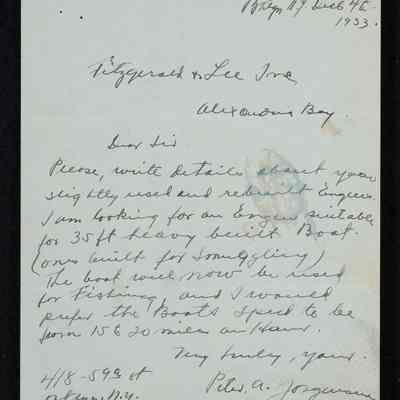 Bklyn N.Y. Dec 4th
1933.
Fitzgerald & Lee Inc
Alexandria Bay.
Dear Sir
Please, write details about your
slightly used and rebuilt Engines.
I am looking for an Engine suitable
for 35 ft heavy built Boat.
(ones built for Smuggling)
The boat will now be used
for Fishing, and I would
prefer the Boats speed to be
from 15 to 20 miles an Hour.
Very truly, yours.
Peter. A. Jorgensen
418-59th St
N.Y.